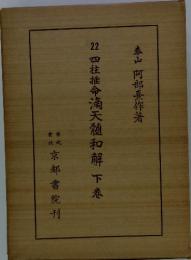 泰山 阿部熹作著
22
四柱推命滴天髓和解 下卷
株式
會社 京都書院刊